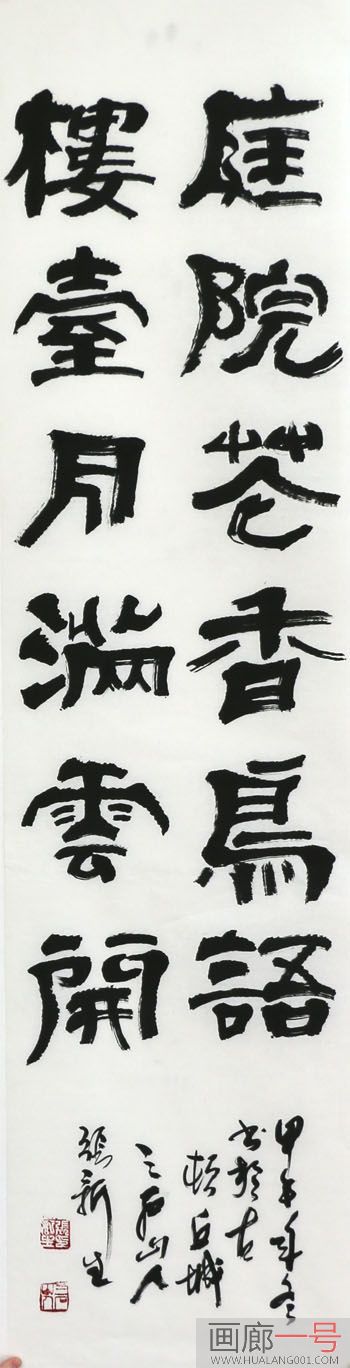 庭院花香鳥語
樓臺月滿雲開
甲午年冬
書於古
頓丘城
三石山人
張新生
画廊一号
WWW.HUALANG001.COM